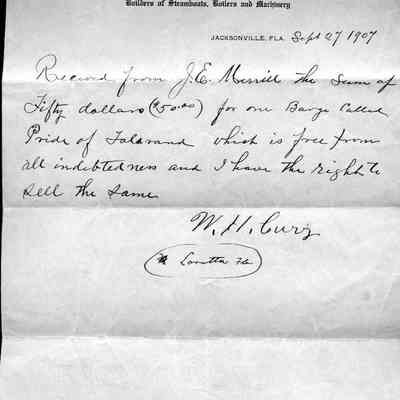 Builders of Steamboats, Boilers and Machinery
JACKSONVILLE, FLA. Sept 27 1907
Received from J.E. Merrill the sum of
Fifty dollars ($50.00) for one Barge Called
Pride of which is free from
all indebtedness and I have the right to
sell the same
W. H.
Loretta Fla